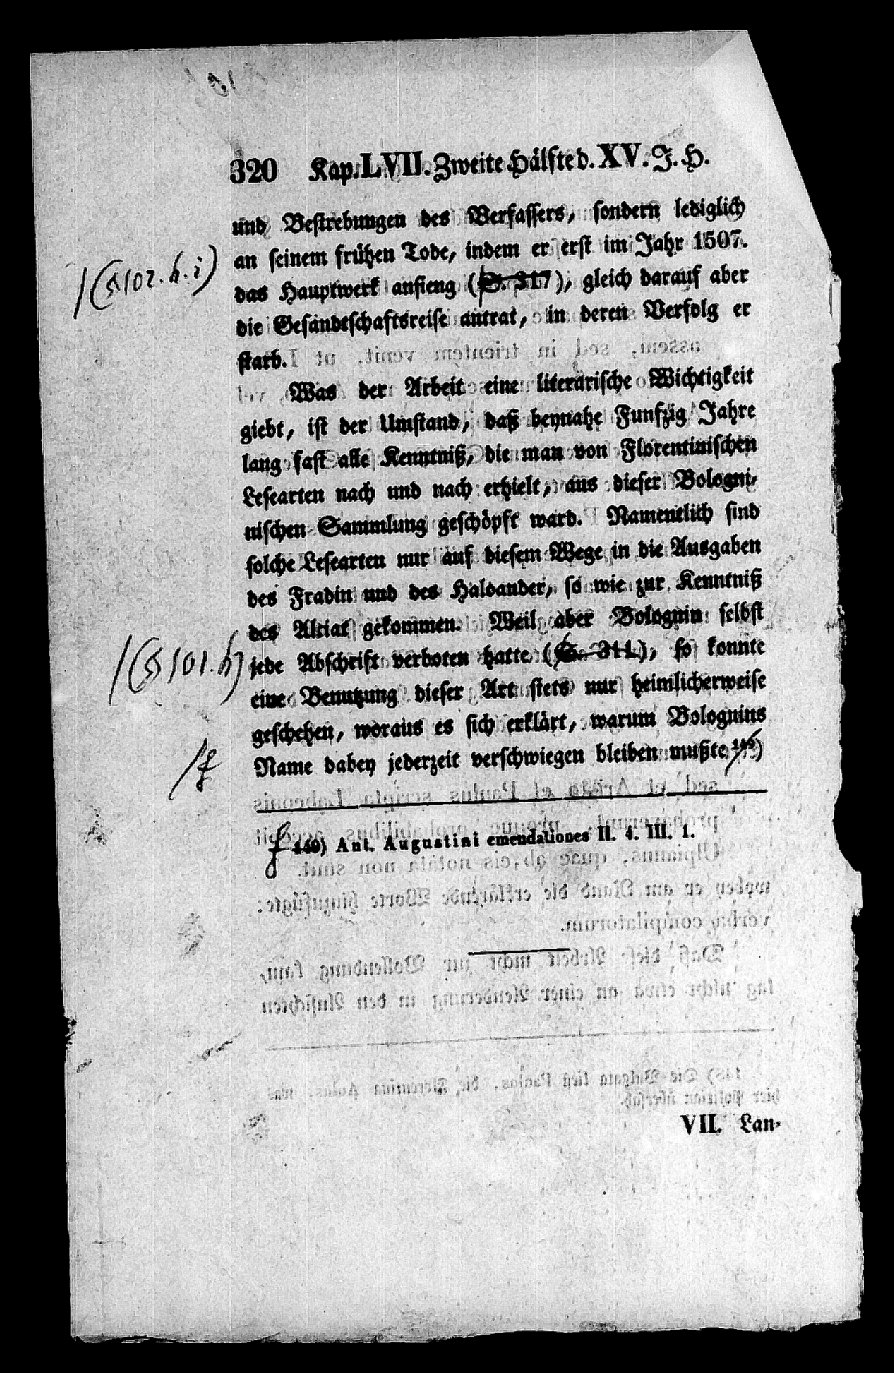 320 Kap. LVII. Zweite Hälfte d. XV. J. H.
und Bestrebungen des Verfassers, sondern lediglich
an seinem frühen Tode, indem er erst im Jahr 1507.
|(§ 102. h. i) das Hauptwerk anfieng (S. 317), gleich darauf aber
die Gesandtschaftsreise antrat, in deren Verfolg er
starb.
Was der Arbeit eine literärische Wichtigkeit
giebt, ist der Umstand, daß beynahe Funfzig Jahre
lang fast alle Kenntniß, die man von Florentinischen
Lesearten nach und nach erhielt, aus dieser Bologni-
nischen Sammlung geschöpft ward. Namentlich sind
solche Lesearten nur auf diesem Wege in die Ausgaben
des Fradin und des Haloander, so wie zur Kenntniß
des Alciat gekommen. Weil aber Bolognin selbst
|(§ 101. h) jede Abschrift verboten hatte (S. 311.), so konnte
eine Benutzung dieser Art stets nur heimlicherweise
geschehen, woraus es sich erklärt, warum Bolognins
|f Name dabey jederzeit verschwiegen bleiben mußte 149)
f 149) Ant. Augustini emendationes II. 4. III. 1.
VII. Lan-